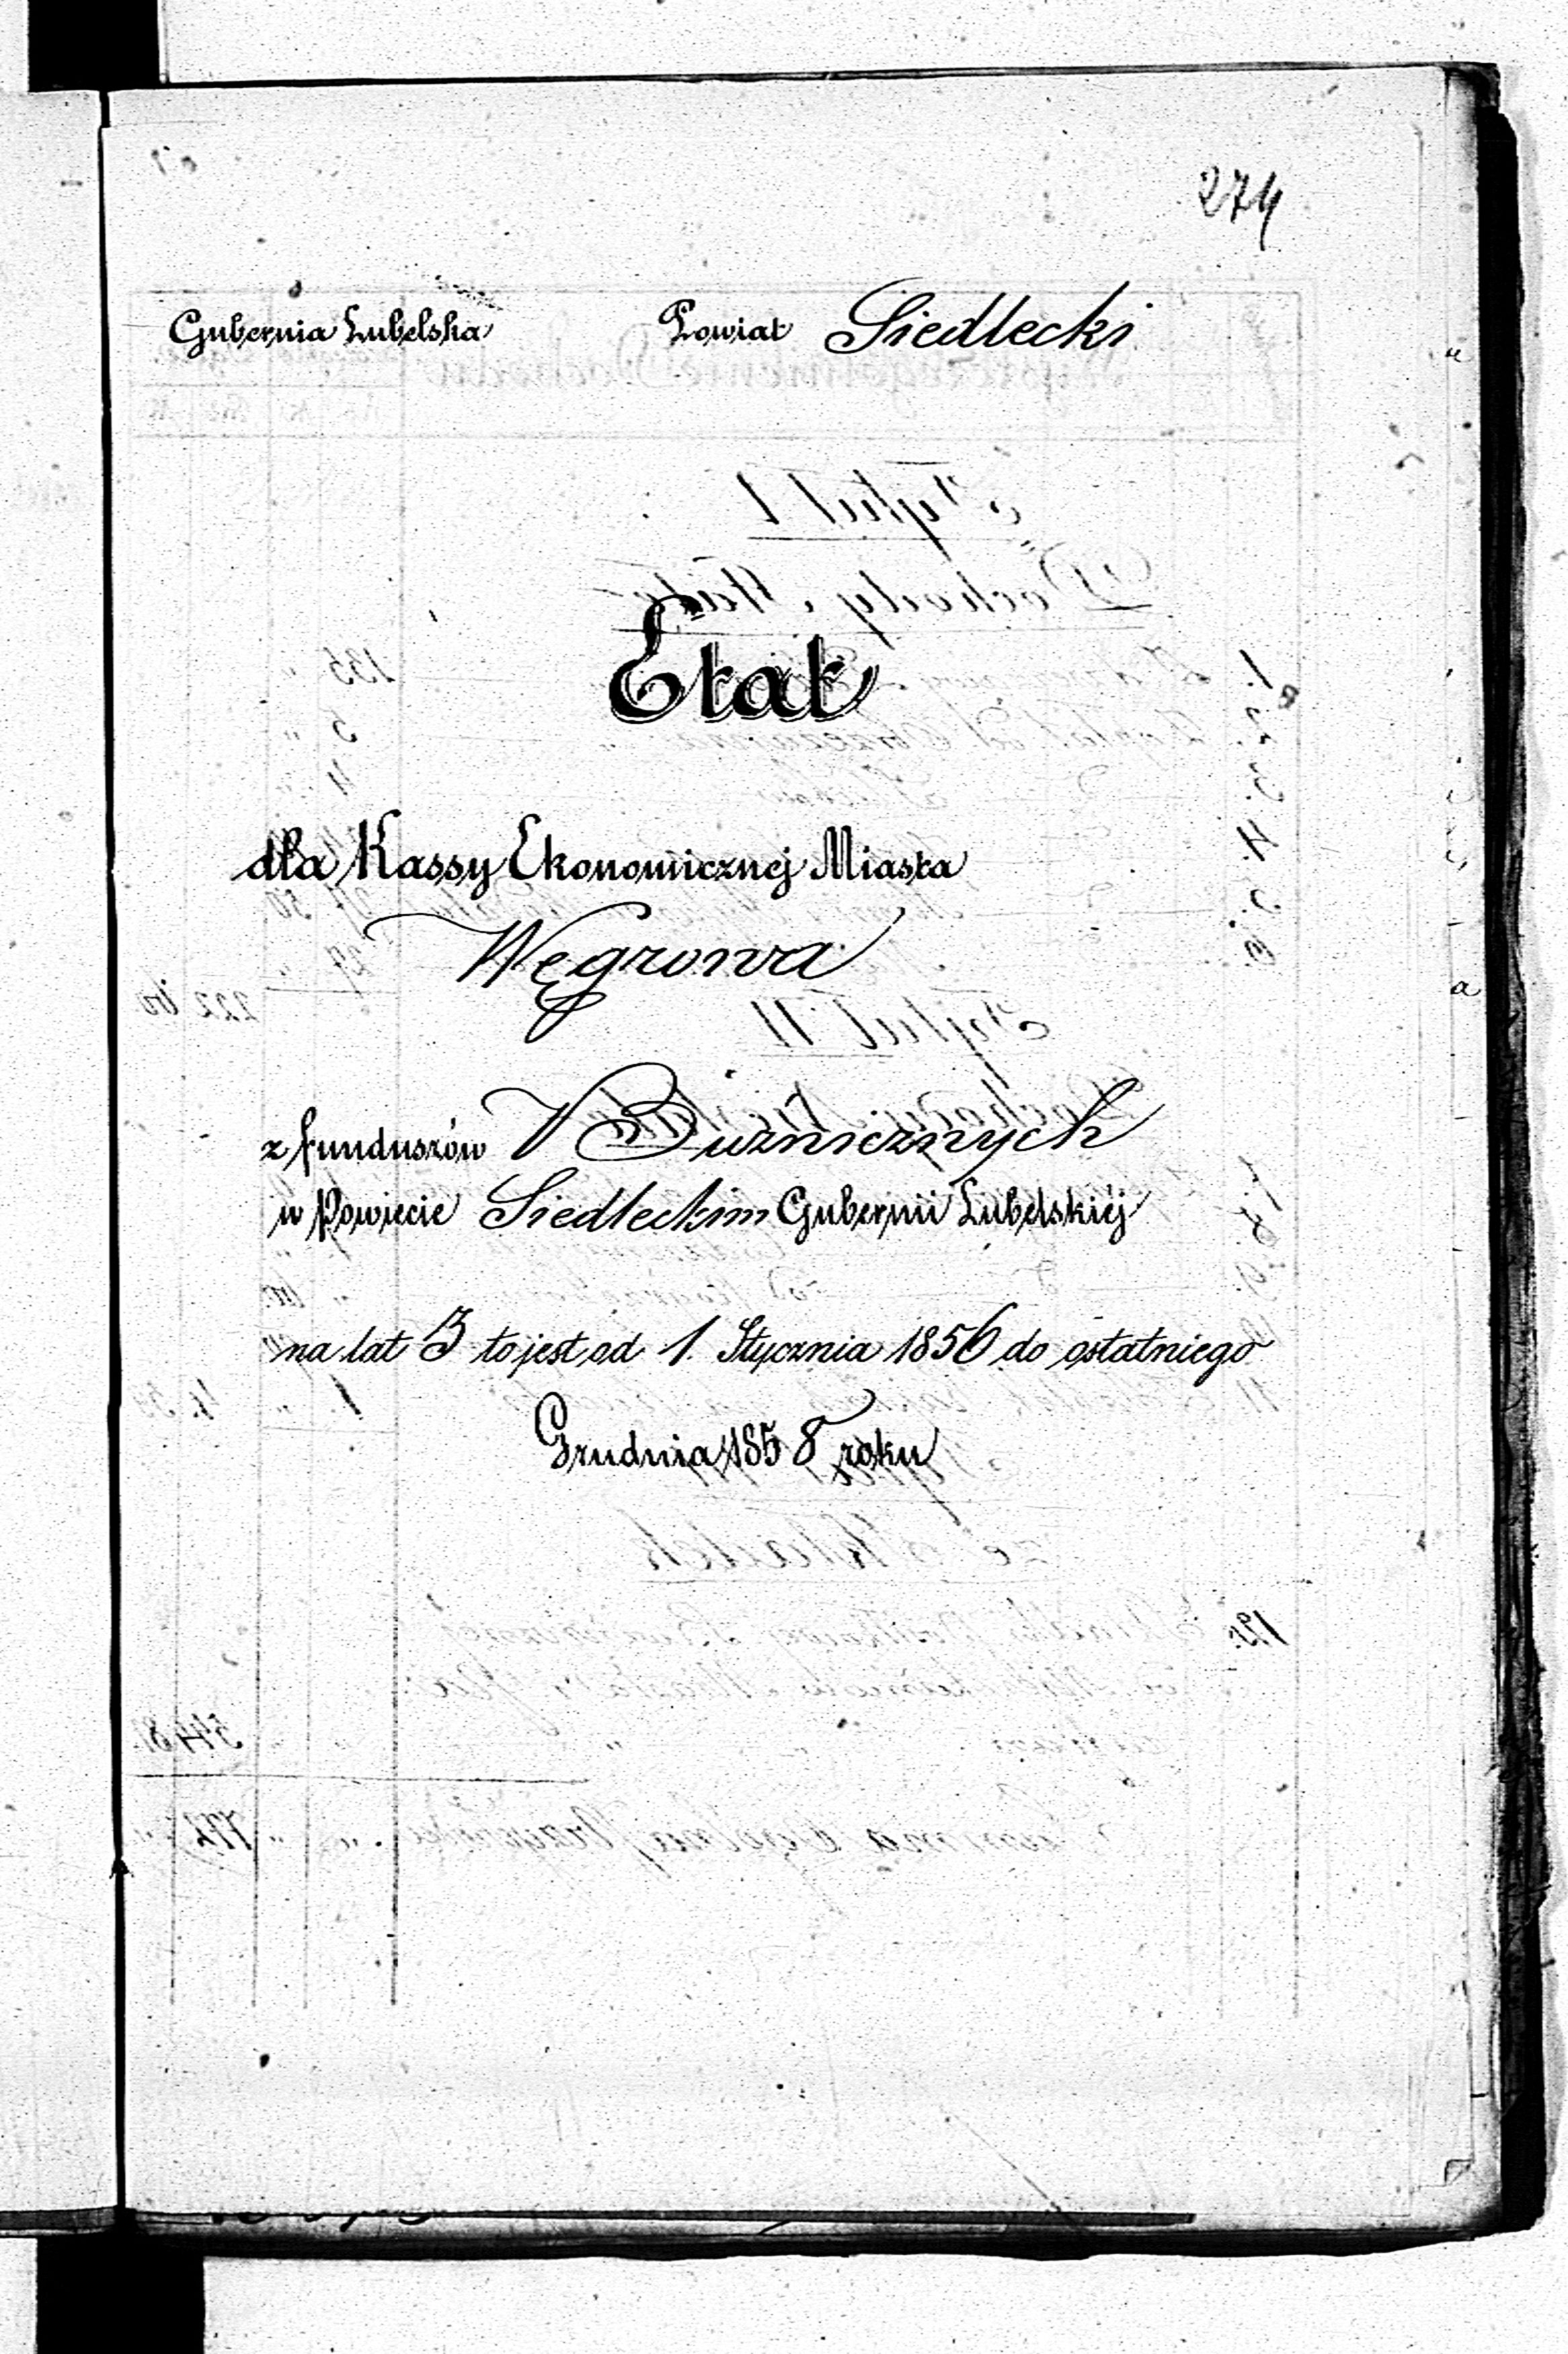 274
Gubernia Lubelska Powiat Siedlecki
Etat
dla Kassy Ekonomicznej Miasta
Węgrowa
z funduszów Bużnicznych
w Powiecie Siedleckim Gubernii Lubelskiéj
na lat 3 to jest od 1. Stycznia 1856 do ostatniego
Grudnia 1858 roku